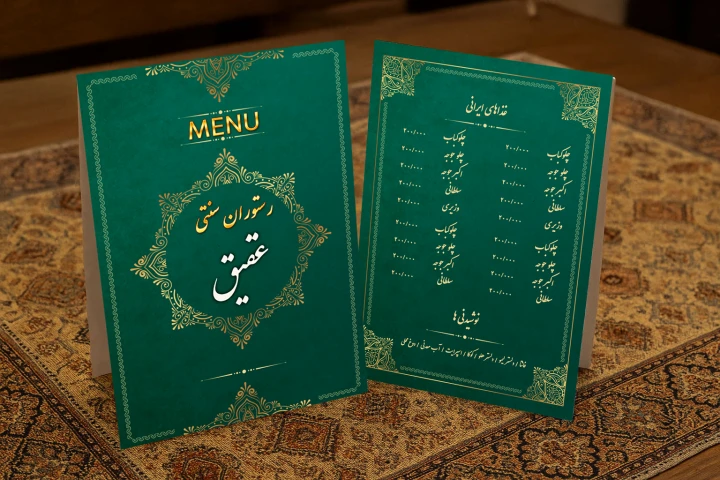 MENU
رستوران سنتی
عقیق
غذاهای ایرانی
چلوکباب ۲۰۰/۰۰۰
چلو جوجه ۲۰۰/۰۰۰
اکبر جوجه ۲۰۰/۰۰۰
سلطانی ۲۰۰/۰۰۰
وزیری ۲۰۰/۰۰۰
چلوکباب ۲۰۰/۰۰۰
چلو جوجه ۲۰۰/۰۰۰
اکبر جوجه ۲۰۰/۰۰۰
سلطانی ۲۰۰/۰۰۰
چلوکباب ۲۰۰/۰۰۰
چلو جوجه ۲۰۰/۰۰۰
اکبر جوجه ۲۰۰/۰۰۰
سلطانی ۲۰۰/۰۰۰
وزیری ۲۰۰/۰۰۰
چلوکباب ۲۰۰/۰۰۰
چلو جوجه ۲۰۰/۰۰۰
اکبر جوجه ۲۰۰/۰۰۰
سلطانی ۲۰۰/۰۰۰
نوشیدنی ها
فانتا / دلستر لیمو / دلستر هلو / کوکا / اسپرایت / آب معدنی / دوغ محلی